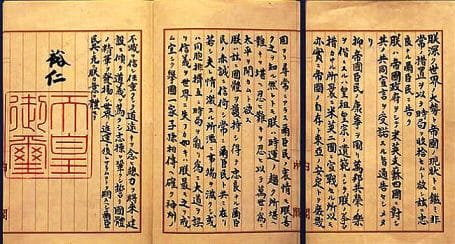 朕深ク世界ノ大勢ト帝國ノ現狀トニ鑑ミ非
常ノ措置ヲ以テ時局ヲ收拾セムト欲シ茲ニ忠
良ナル爾臣民ニ告ク
朕ハ帝國政府ヲシテ米英支蘇四國ニ對シ
其ノ共同宣言ヲ受諾スル旨通告セシメタ
リ
抑帝國臣民ノ康寧ヲ圖リ萬邦共榮ノ樂
ヲ偕ニスルハ皇祖皇宗ノ遺範ニシテ朕ノ拳々
措カサル所曩ニ米英二國ニ宣戰セル所以モ
亦實ニ帝國ノ自存ト東亞ノ安定トヲ庶幾
固ヨリ尋常ニアラス爾臣民ノ衷情モ朕善ク
之ヲ知ル然レトモ朕ハ時運ノ趨ク所堪ヘ
難キヲ堪ヘ忍ヒ難キヲ忍ヒ以テ萬世ノ爲ニ
太平ヲ開カムト欲ス
朕ハ茲ニ國體ヲ護持シ得テ忠良ナル爾臣
民ノ赤誠ニ信倚シ常ニ爾臣民ト共ニ在リ
若シ夫レ情ノ激スル所濫ニ事端ヲ滋クシ或
ハ同胞排擠互ニ時局ヲ亂リ爲ニ大道ヲ誤
リ信義ヲ世界ニ失フカ如キハ朕最モ之ヲ戒
ム宜シク擧國一家子孫相傳ヘ確ク神州ノ
不滅ヲ信シ任重クシテ道遠キヲ念ヒ總力ヲ將來ノ建
設ニ傾ケ道義ヲ篤クシ志操ヲ鞏クシ誓テ國體
ノ精華ヲ發揚シ世界ノ進運ニ後レサラムコトヲ期スヘシ爾臣
民其レ克ク朕カ意ヲ體セヨ
裕仁
天皇
御璽
内閣